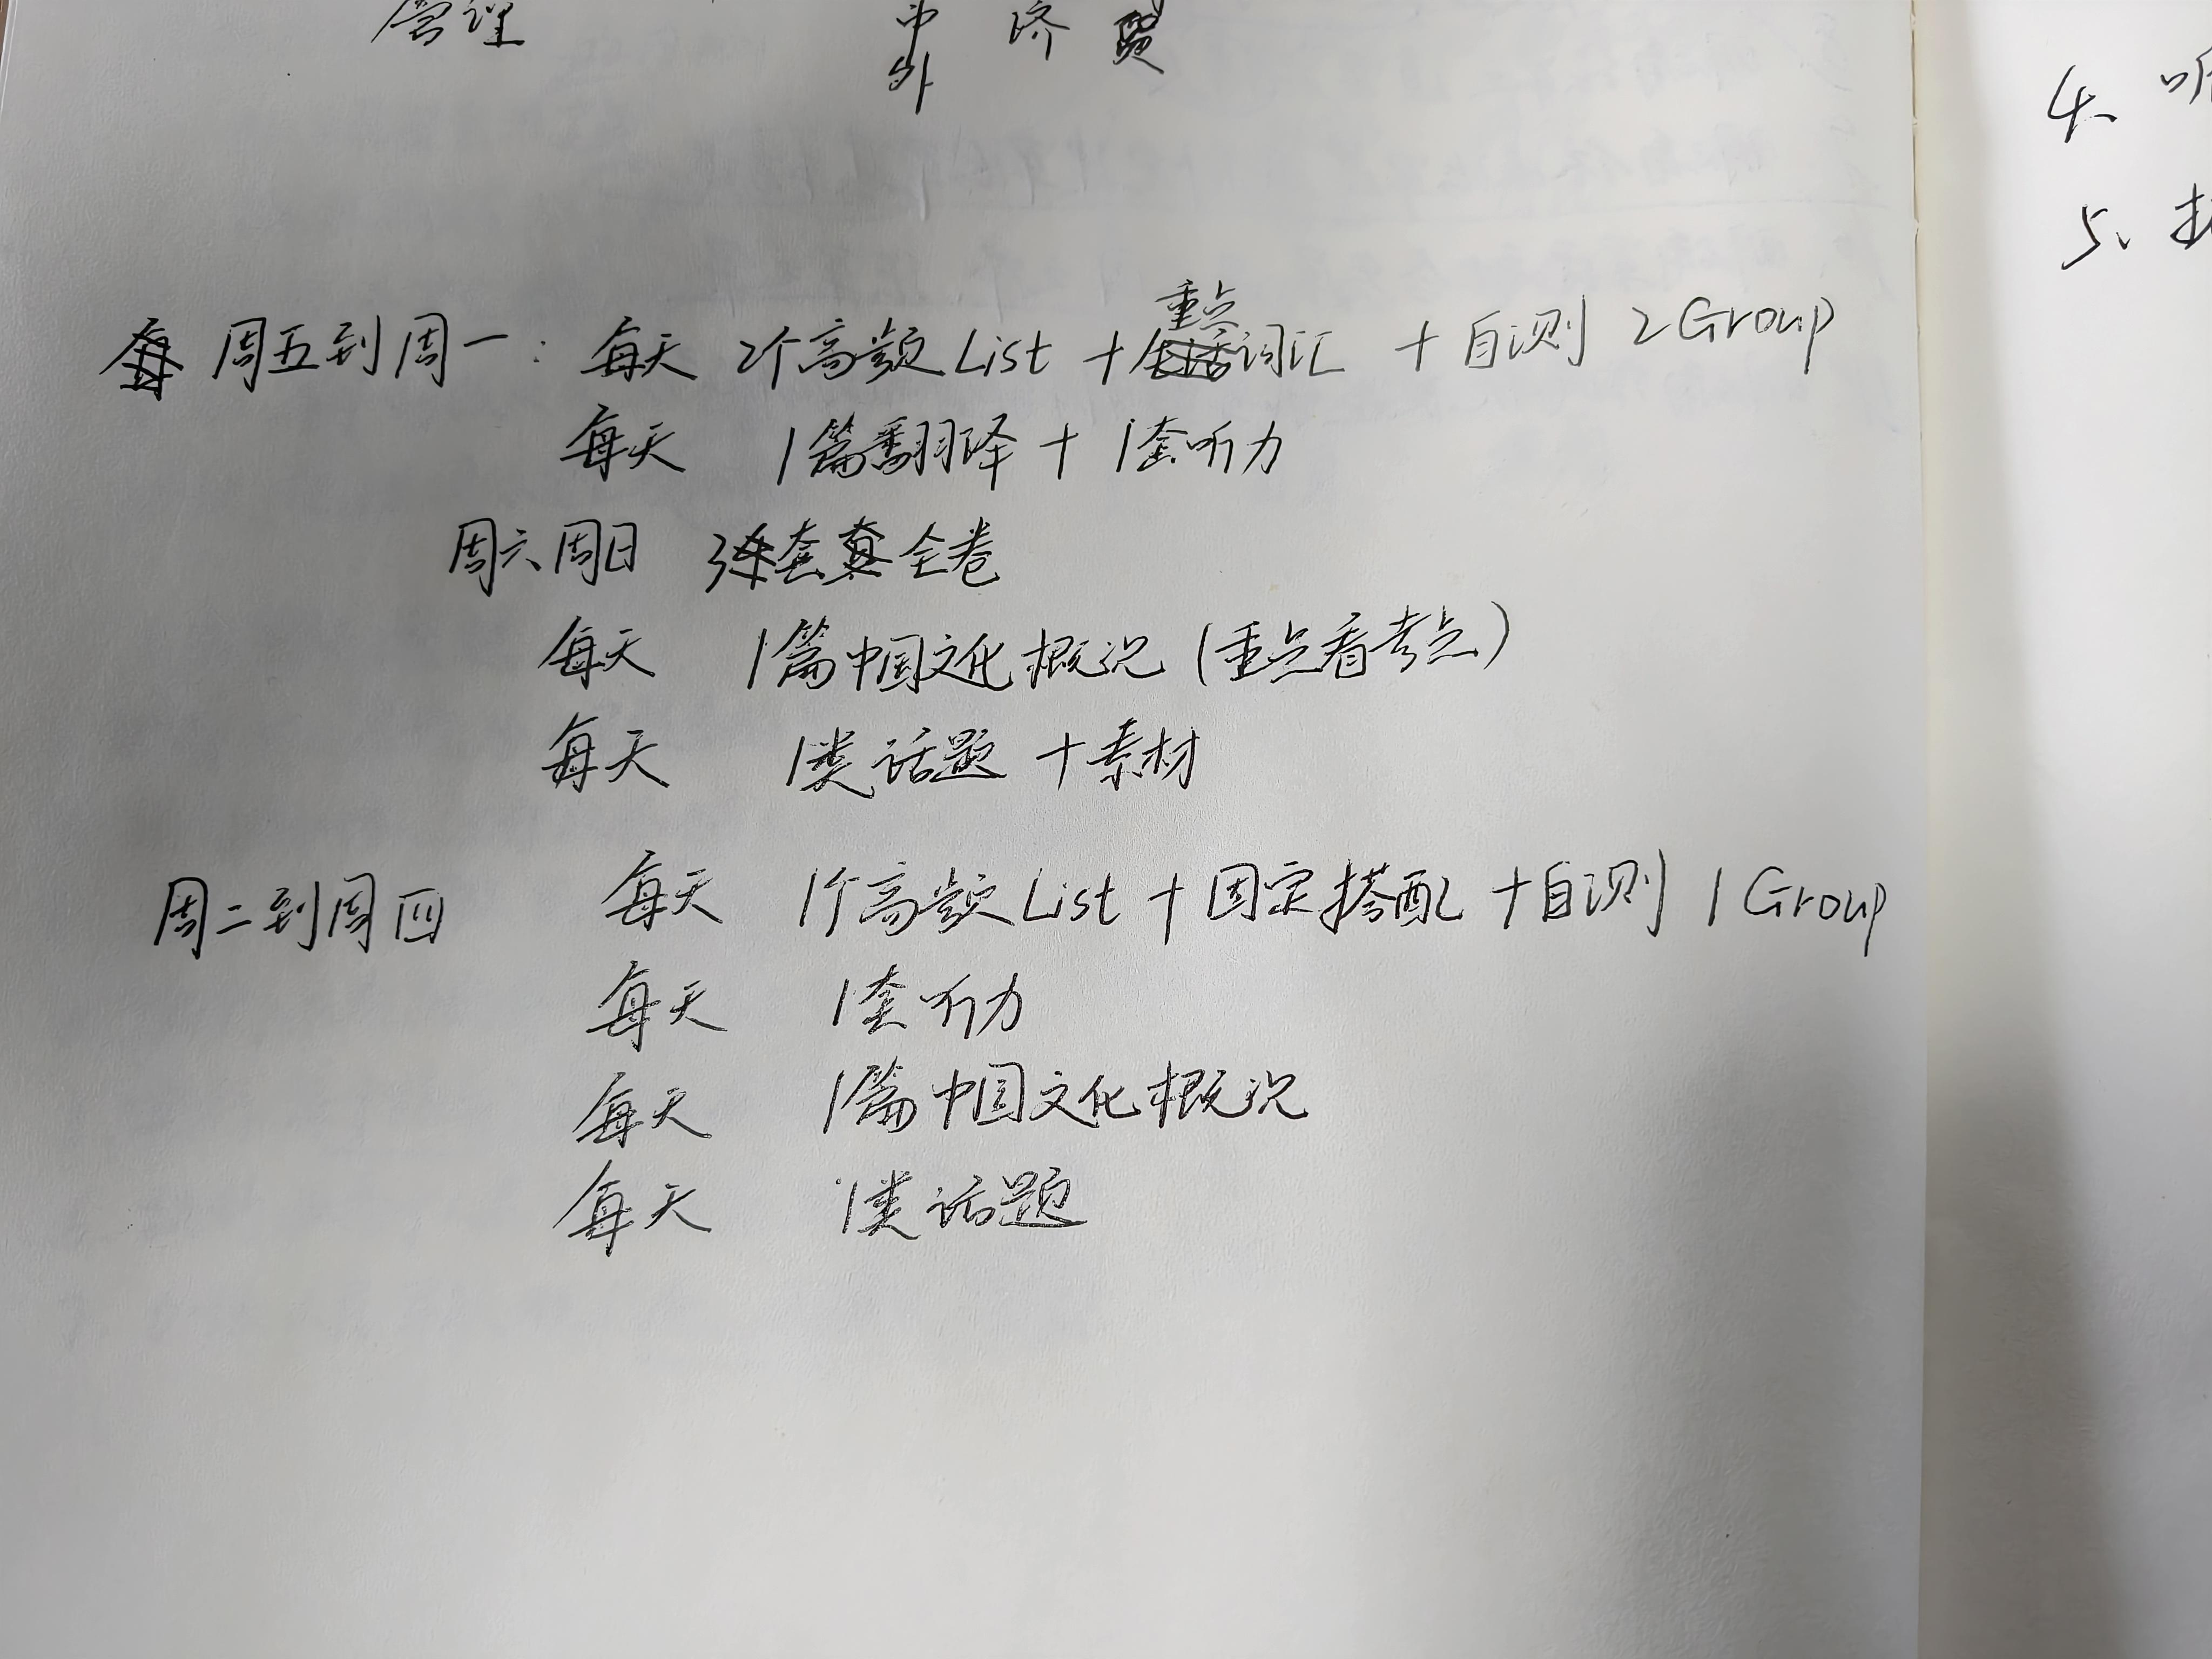 管理 中外 济 贸
4、听
5、
周五到周一：每天 2个高频List + 重点词汇 + 自测 2Group
每天 1篇翻译 + 1套听力
周六周日 3套全卷
每天 1篇中国文化概况（重点看考点）
每天 1类话题 + 素材
周二到周四 每天 1个高频List + 固定搭配 + 自测 1Group
每天 1套听力
每天 1篇中国文化概况
每天 1类话题